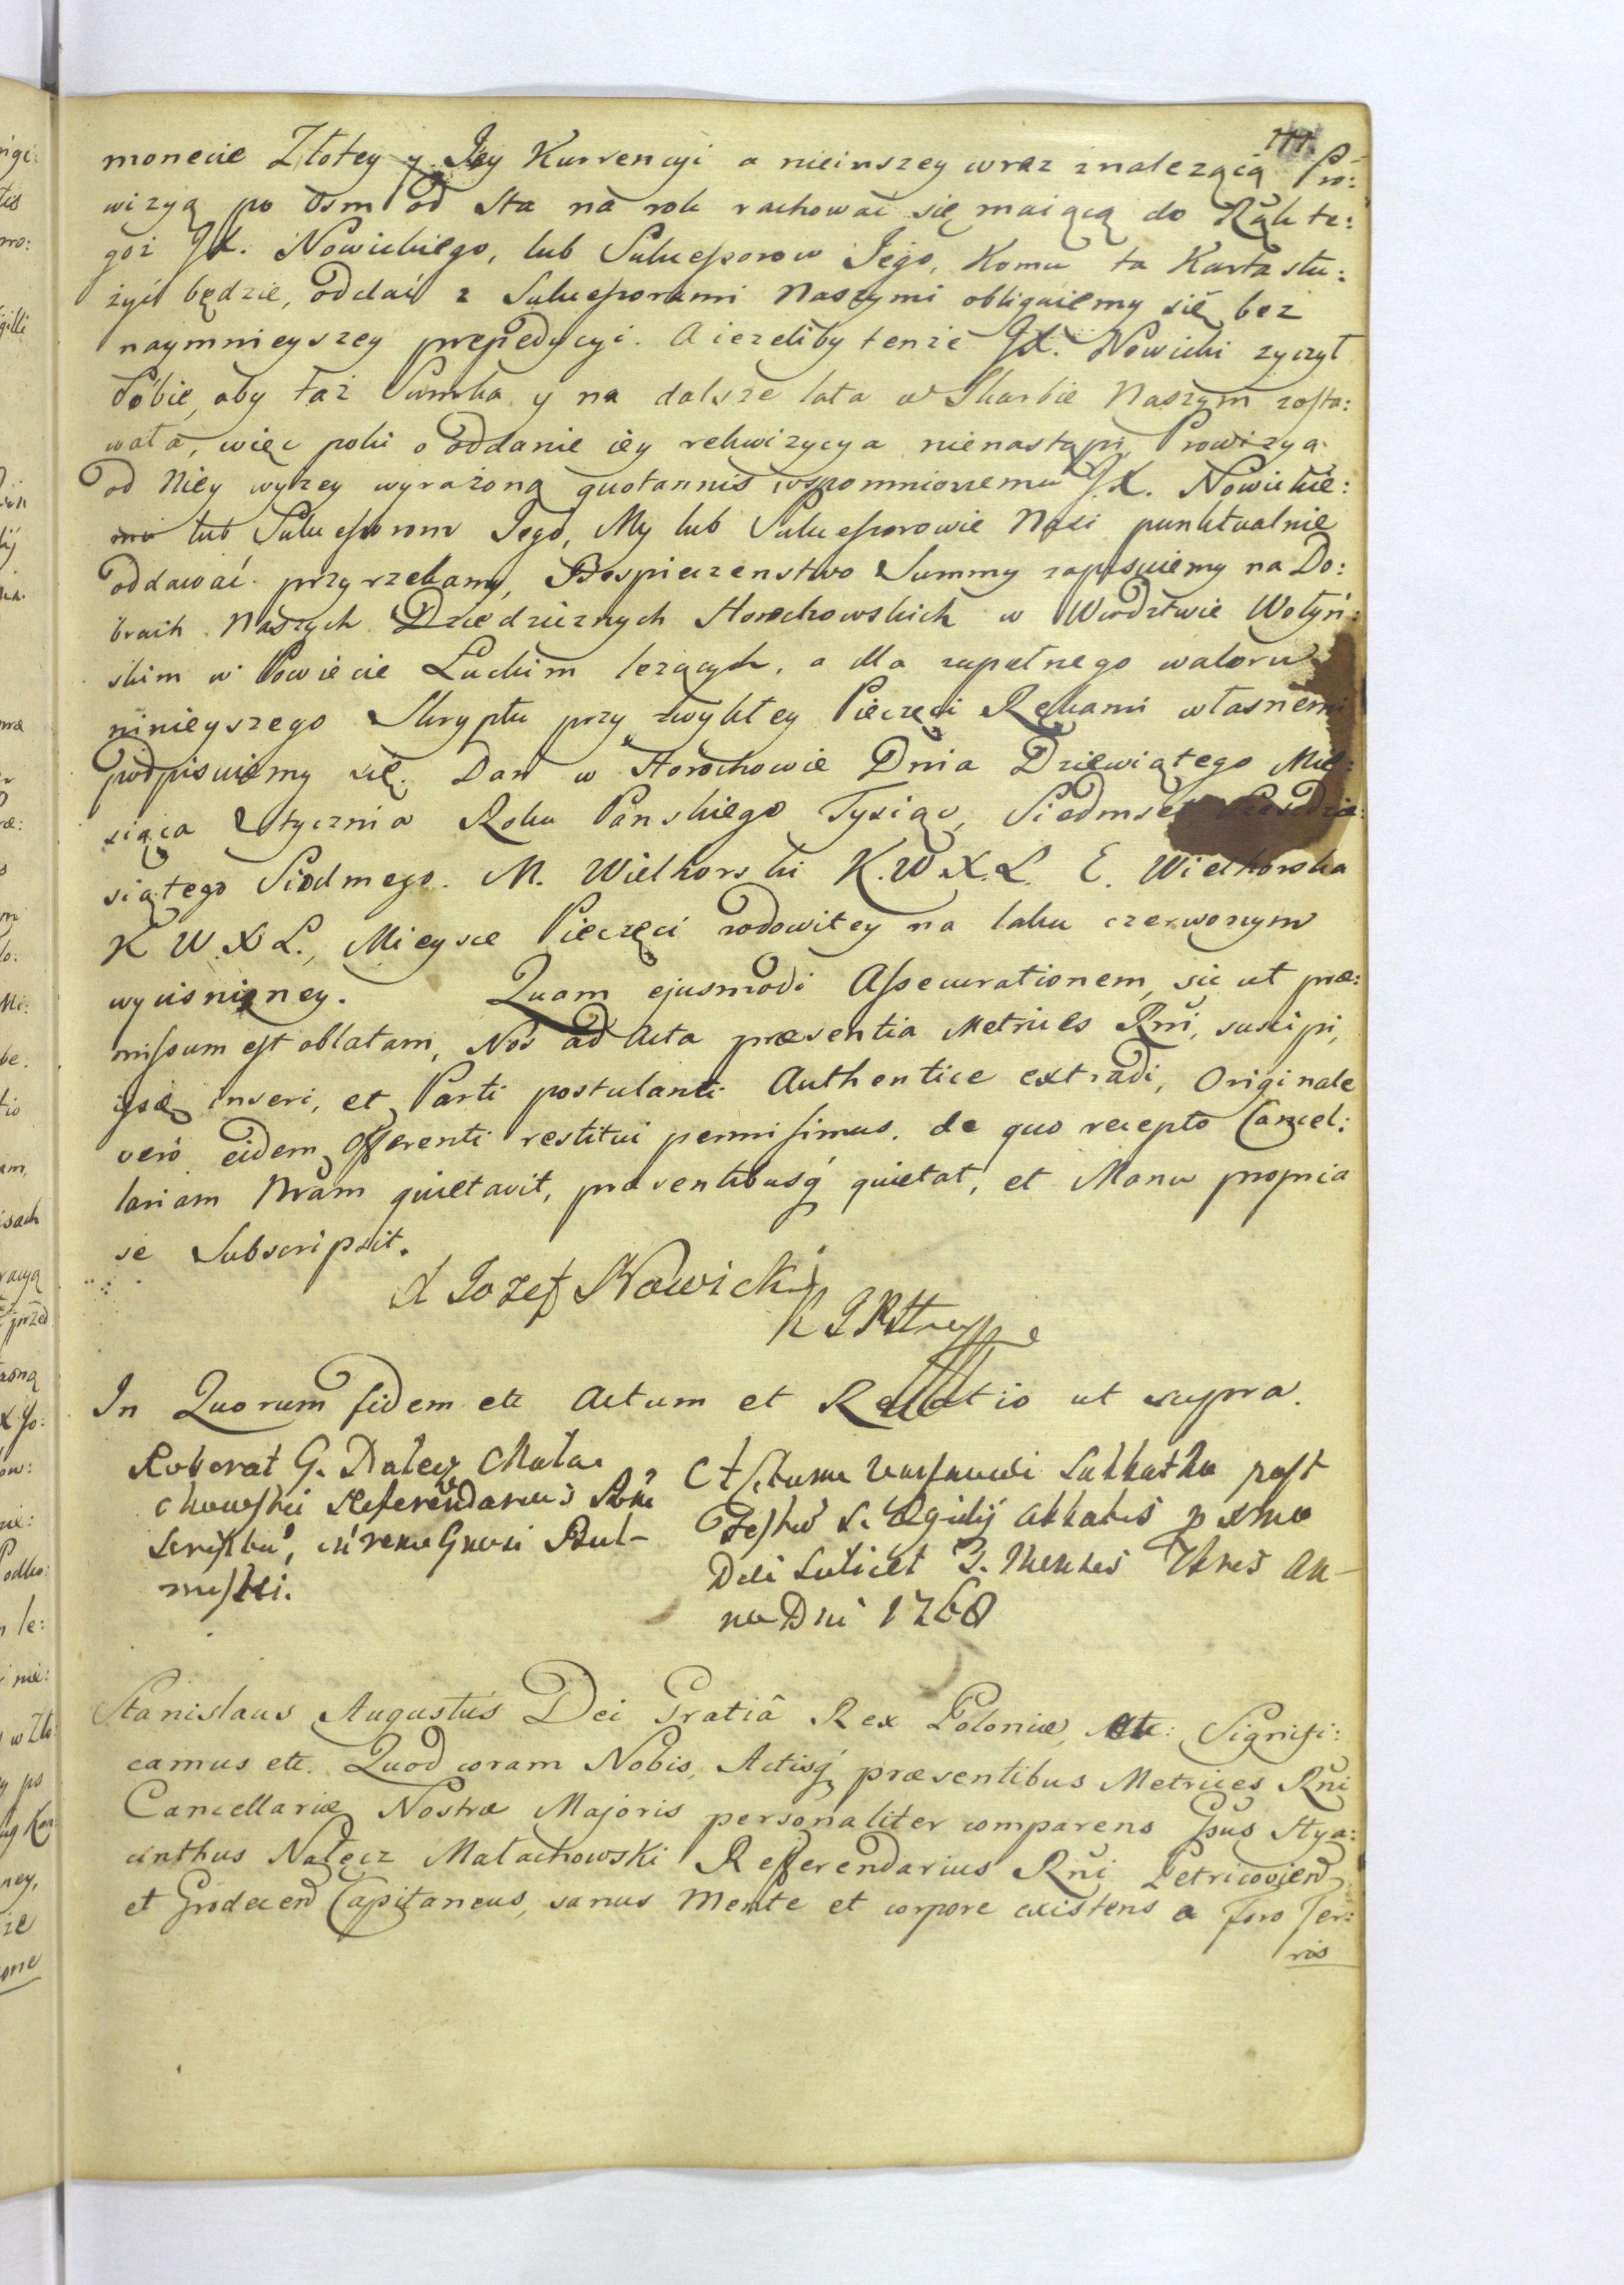 111.
monecie Złotey y Iey Kurrencyi a nieinszey wraz znalezącą Pro:
wizyą po Osm od Sta na rok rachować się maiącą do Rąk te:
goż JX. Nowickiego, lub Sukcessorow Iego, Komu ta Karta słu:
żyć będzie, oddać z Sukcessorami Naszymi obliguiemy się bez
naymnieyszey prepedycyi. A iezeliby tenże JX. Nowicki zyczył
Sobie, aby taż Summa y na dalsze lata w Skarbie Naszym zosta:
wała, więc poki o oddanie iey rekwizycya nienastąpi, Prowizyą
od Niey wyżey wyrażoną quotannis wspomnionemu JX. Nowickie:
mu lub Sukcessorom Iego, My lub Sukcessorowie Nasi punktualnie
oddawać przyrzekamy, Bespieczenstwo Summy zapisuiemy na Do:
brach Naszych Dziedzicznych Horochowskich w Wwdztwie Wołyń:
skim w Powiecie Łuckim leżących, a dla zupełnego waloru
ninieyszego Skryptu przy zwykłey Pieczęci Rękami własnemi
podpisuiemy się. Dan w Horochowie Dnia Dziewiątego Mie:
siąca Stycznia Roku Panskiego Tysiąc, Siedmset Szesdzie:
siątego Siodmego. M. Wielhorski K.W.X.L. E. Wielhorska
K W.X L., Mieysce Pieczęci rodowitey na laku czerwonym
wycisnioney. Quam ejusmodi Assecurationem, sic ut præ:
missum est oblatam, Nos ad Acta præsentia Metrices Rni, suscipi,
ijsq inseri, et Parti postulanti Authentice extradi, Originale
vero eidem Offerenti restitui permisimus. de quo recepto Cancel:
lariam Nram quietavit, præsentibusq quietat, et Manu propria
se Subscripsit.
X Jozef Nowicki
In Quorum fidem etc Actum et Rellatio ut supra.
Roborat G. Nałęcz Mała
chowski Referendarius Rni
Actum Varsaviæ Sabbatho post
Festum S. Egidij Abbatis pxmo
Die Scilicet 3. Mensis 7bris An-
no Dni 1768
Stanislaus Augustus Dei Gratiâ Rex Poloniæ, etc: Signifi:
camus etc. Quod coram Nobis, Actisq præsentibus Metrices Rni
Cancellariæ Nostræ Majoris personaliter comparens Gsus Hya:
cinthus Nałęcz Małachowski Referendarius Rni Petricovien
et Grodecen Capitaneus, sanus Mente et corpore existens a Foro Ter:
ris